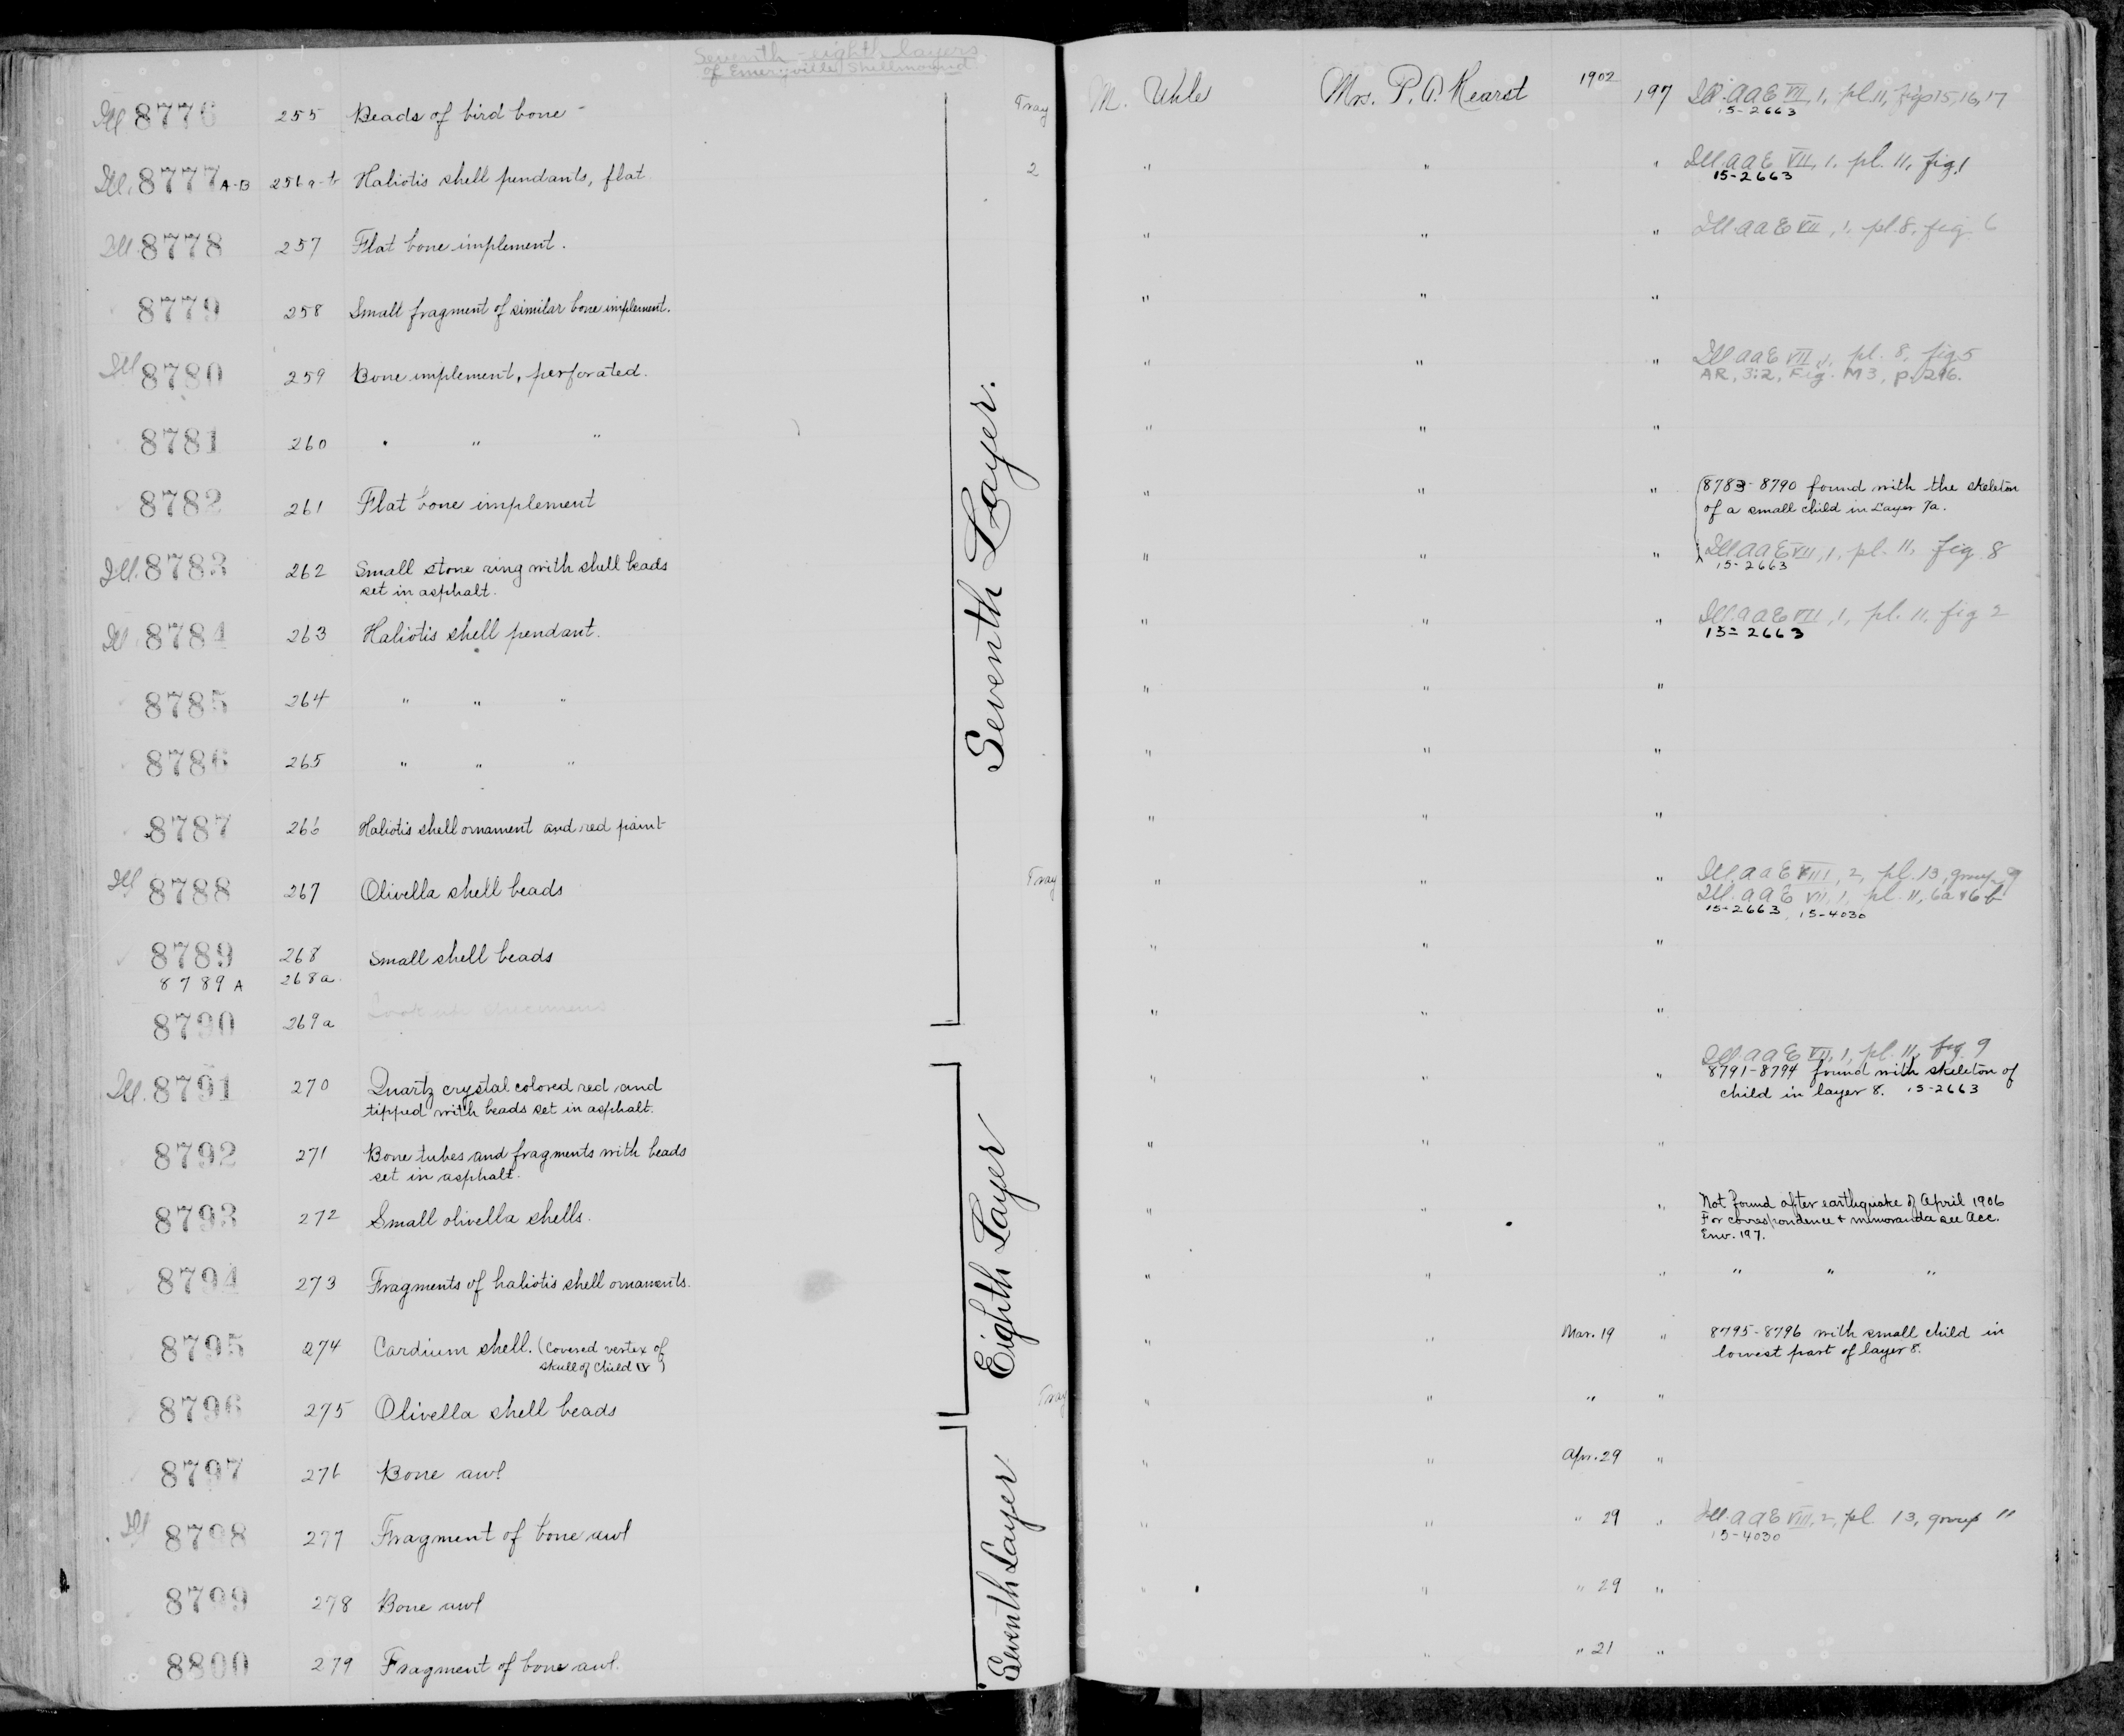 Seventh - eighth layers
of Emeryville Shellmound
Ill 8776 255 Beads of bird bone - Tray M. Uhle Mrs. P. A. Hearst 1902 197 Ill. AAE VII, 1, pl. 11, figs 15, 16, 17
15-2663
Ill. 8777 A-B 256 a-b Haliotis shell pendants, flat 2 " " " Ill. AAE VII, 1, pl. 11, fig. 1
15-2663
Ill. 8778 257 Flat bone implement. " " " Ill. AAE VII, 1, pl. 8, fig. 6
8779 258 Small fragment of similar bone implement. " " "
Ill 8780 259 Bone implement, perforated. " " " Ill AAE VII, 1, pl. 8, fig 5
AR, 3:2, Fig. M3, p. 296.
8781 260 " " " " " "
8782 261 Flat bone implement " " " 8783-8790 found with the skeleton
of a small child in Layer 7a.
Ill. 8783 262 Small stone ring with shell beads
set in asphalt. " " " Ill AAE VII, 1, pl. 11, fig 8
15-2663
Ill 8784 263 Haliotis shell pendant. " " " Ill. AAE VII, 1, pl. 11, fig 2
15-2663
8785 264 " " " " " "
8786 265 " " " " " "
Seventh Layer.
8787 266 Haliotis shell ornament and red paint " " "
Ill 8788 267 Olivella shell beads Tray " " " Ill. AAE VIII, 2, pl. 13, group 9
Ill. AAE VII, 1, pl. 11, 6a & 6b
15-2663, 15-4030
8789 268 Small shell beads " " "
8789 A 268a.
8790 269a " " "
Ill. 8791 270 Quartz crystal colored red and
tipped with beads set in asphalt. " " " Ill. AAE VII, 1, pl. 11, fig. 9
8791-8794 found with skeleton of
child in layer 8. 15-2663
8792 271 Bone tubes and fragments with beads
set in asphalt. " " "
8793 272 Small olivella shells. " " " Not found after earthquake of April 1906
For correspondence & memoranda see Acc.
Env. 197.
8794 273 Fragments of haliotis shell ornaments. " " " " " "
Eighth Layer
8795 274 Cardium shell. (Covered vertex of
skull of child IX) " " Mar. 19 " 8795-8796 with small child in
lowest part of layer 8.
8796 275 Olivella shell beads Tray " " " "
8797 276 Bone awl " " Apr. 29 "
Ill 8798 277 Fragment of bone awl " " " 29 " Ill. AAE VIII, 2, pl. 13, group 11
15-4030
8799 278 Bone awl " " " 29 "
8800 279 Fragment of bone awl. " " 21 "
Seventh Layer